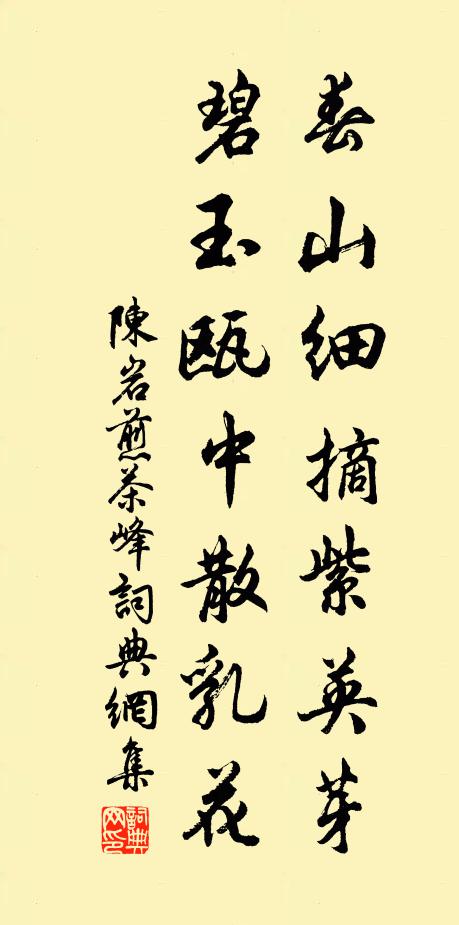 春山细摘紫英芽
碧玉瓯中散乳花
陳岩煎茶峰詞典網集
詞典网印